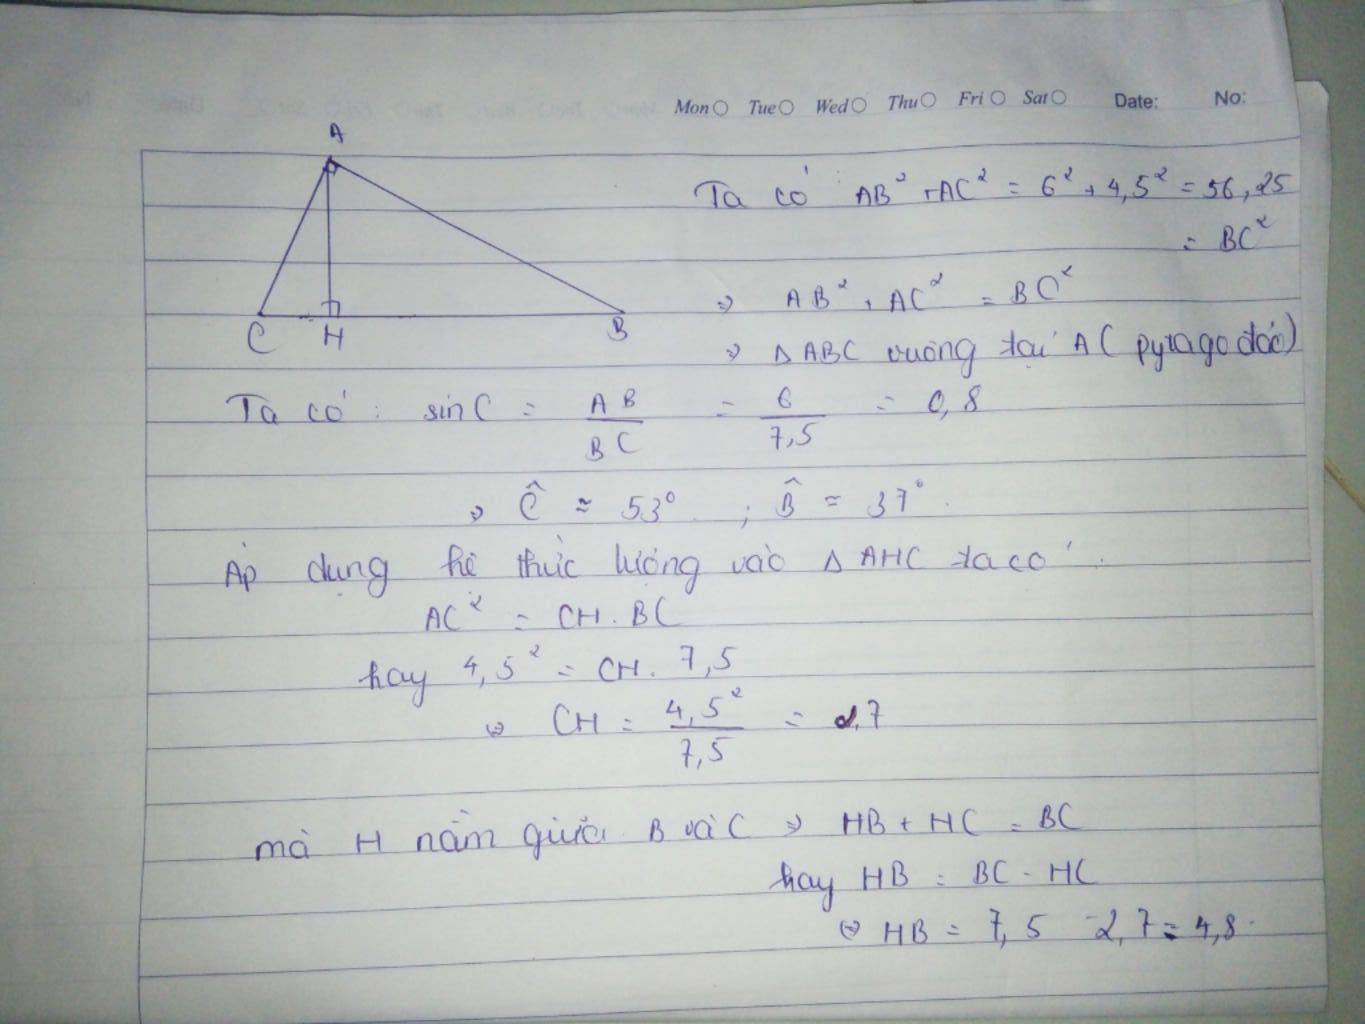 Mon Tue Wed Thu Fri Sat Date: No:
A
C H B
Ta có : AB² + AC² = 6² + 4,5² = 56,25
= BC²
⇒ AB² + AC² = BC²
⇒ Δ ABC vuông tại A ( pytago đảo)
Ta có : sin C = AB/BC = 6/7,5 = 0,8
⇒ Ĉ ≈ 53° ; B̂ ≈ 37°.
Áp dụng hệ thức lượng vào Δ AHC ta có :
AC² = CH. BC
hay 4,5² = CH. 7,5
⇔ CH = 4,5²/7,5 = 2,7
mà H nằm giữa B và C ⇒ HB + HC = BC
hay HB = BC - HC
⇔ HB = 7,5 - 2,7 = 4,8.